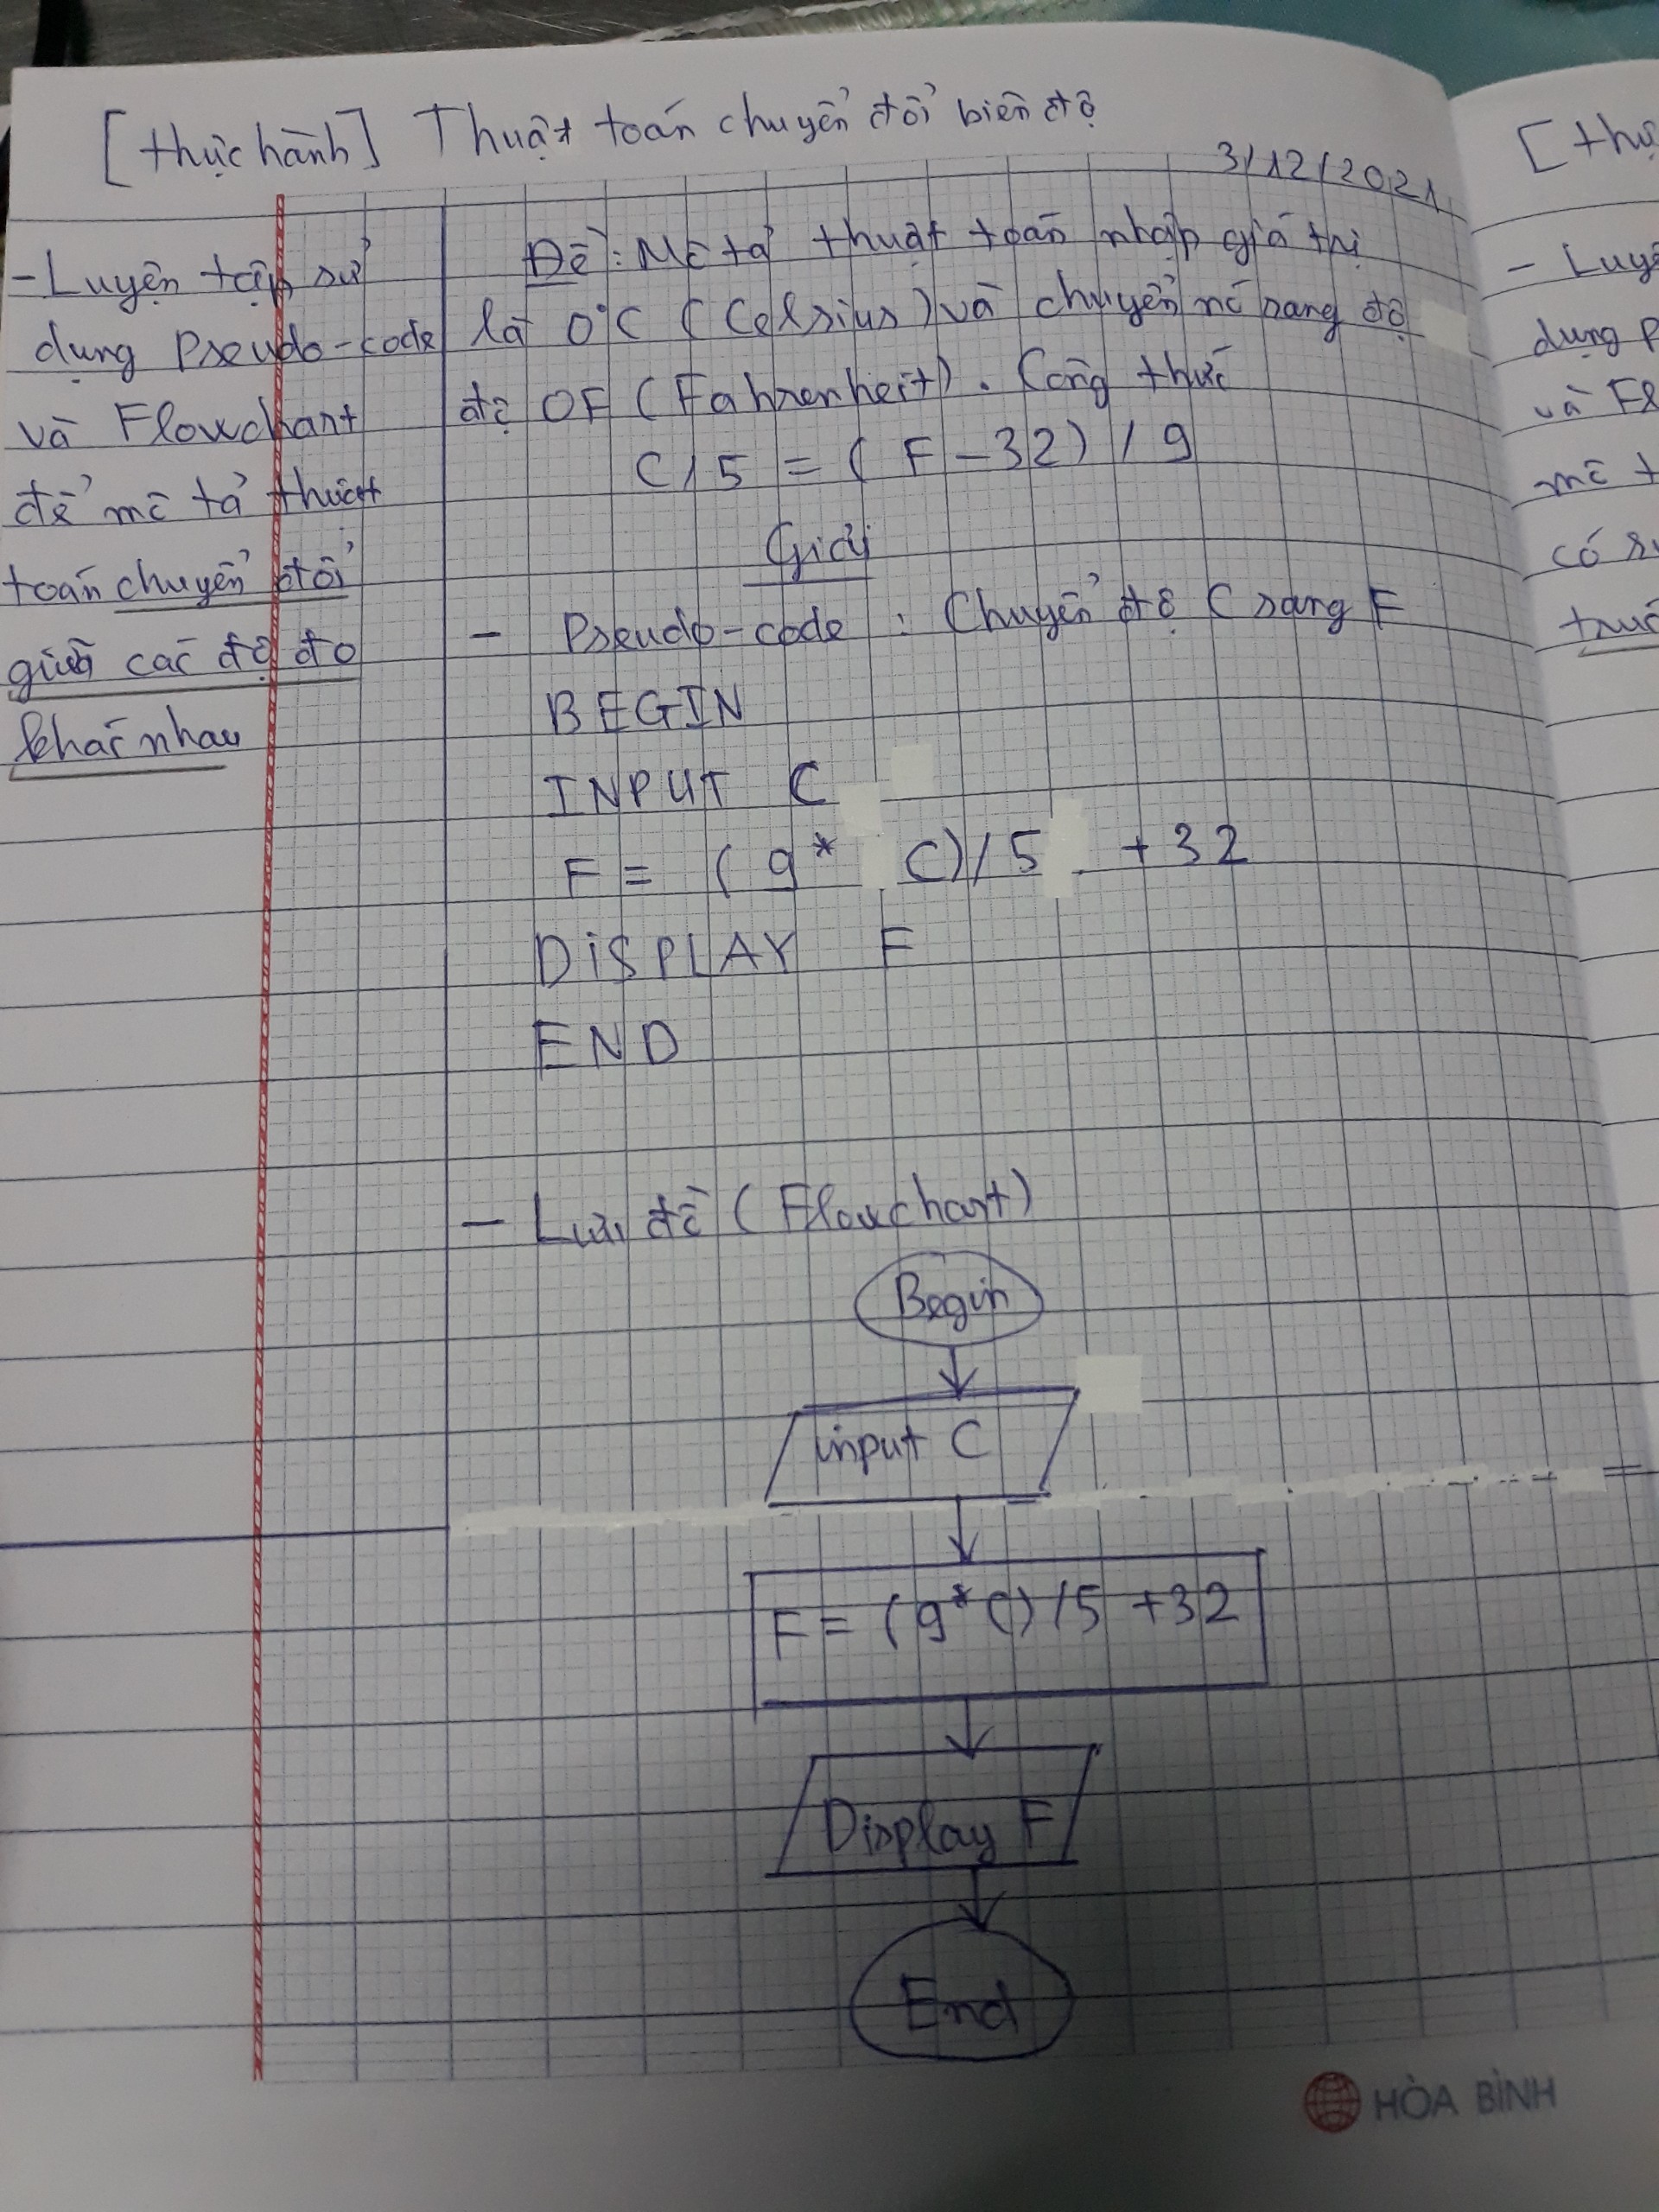 [thực hành] Thuật toán chuyển đổi biên độ
3/12/2021
- Luyện tập sử
dụng Pseudo-code
và Flowchart
để mô tả thuật
toán chuyển đổi
giữa các độ đo
khác nhau
Đề: Mô tả thuật toán nhập giá trị
là 0°C (Celsius) và chuyển nó sang độ
độ OF (Fahrenheit). Công thức
C/5 = (F-32)/9
Giải
- Pseudo-code: Chuyển độ C sang F
BEGIN
INPUT C
F = (9* C)/5 +32
DISPLAY F
END
- Lưu đồ (Flowchart)
Begin
input C
F = (9*C)/5 +32
Display F
End
HÒA BÌNH
[thự
- Luyệ
dụng P
và Fl
mô t
có s